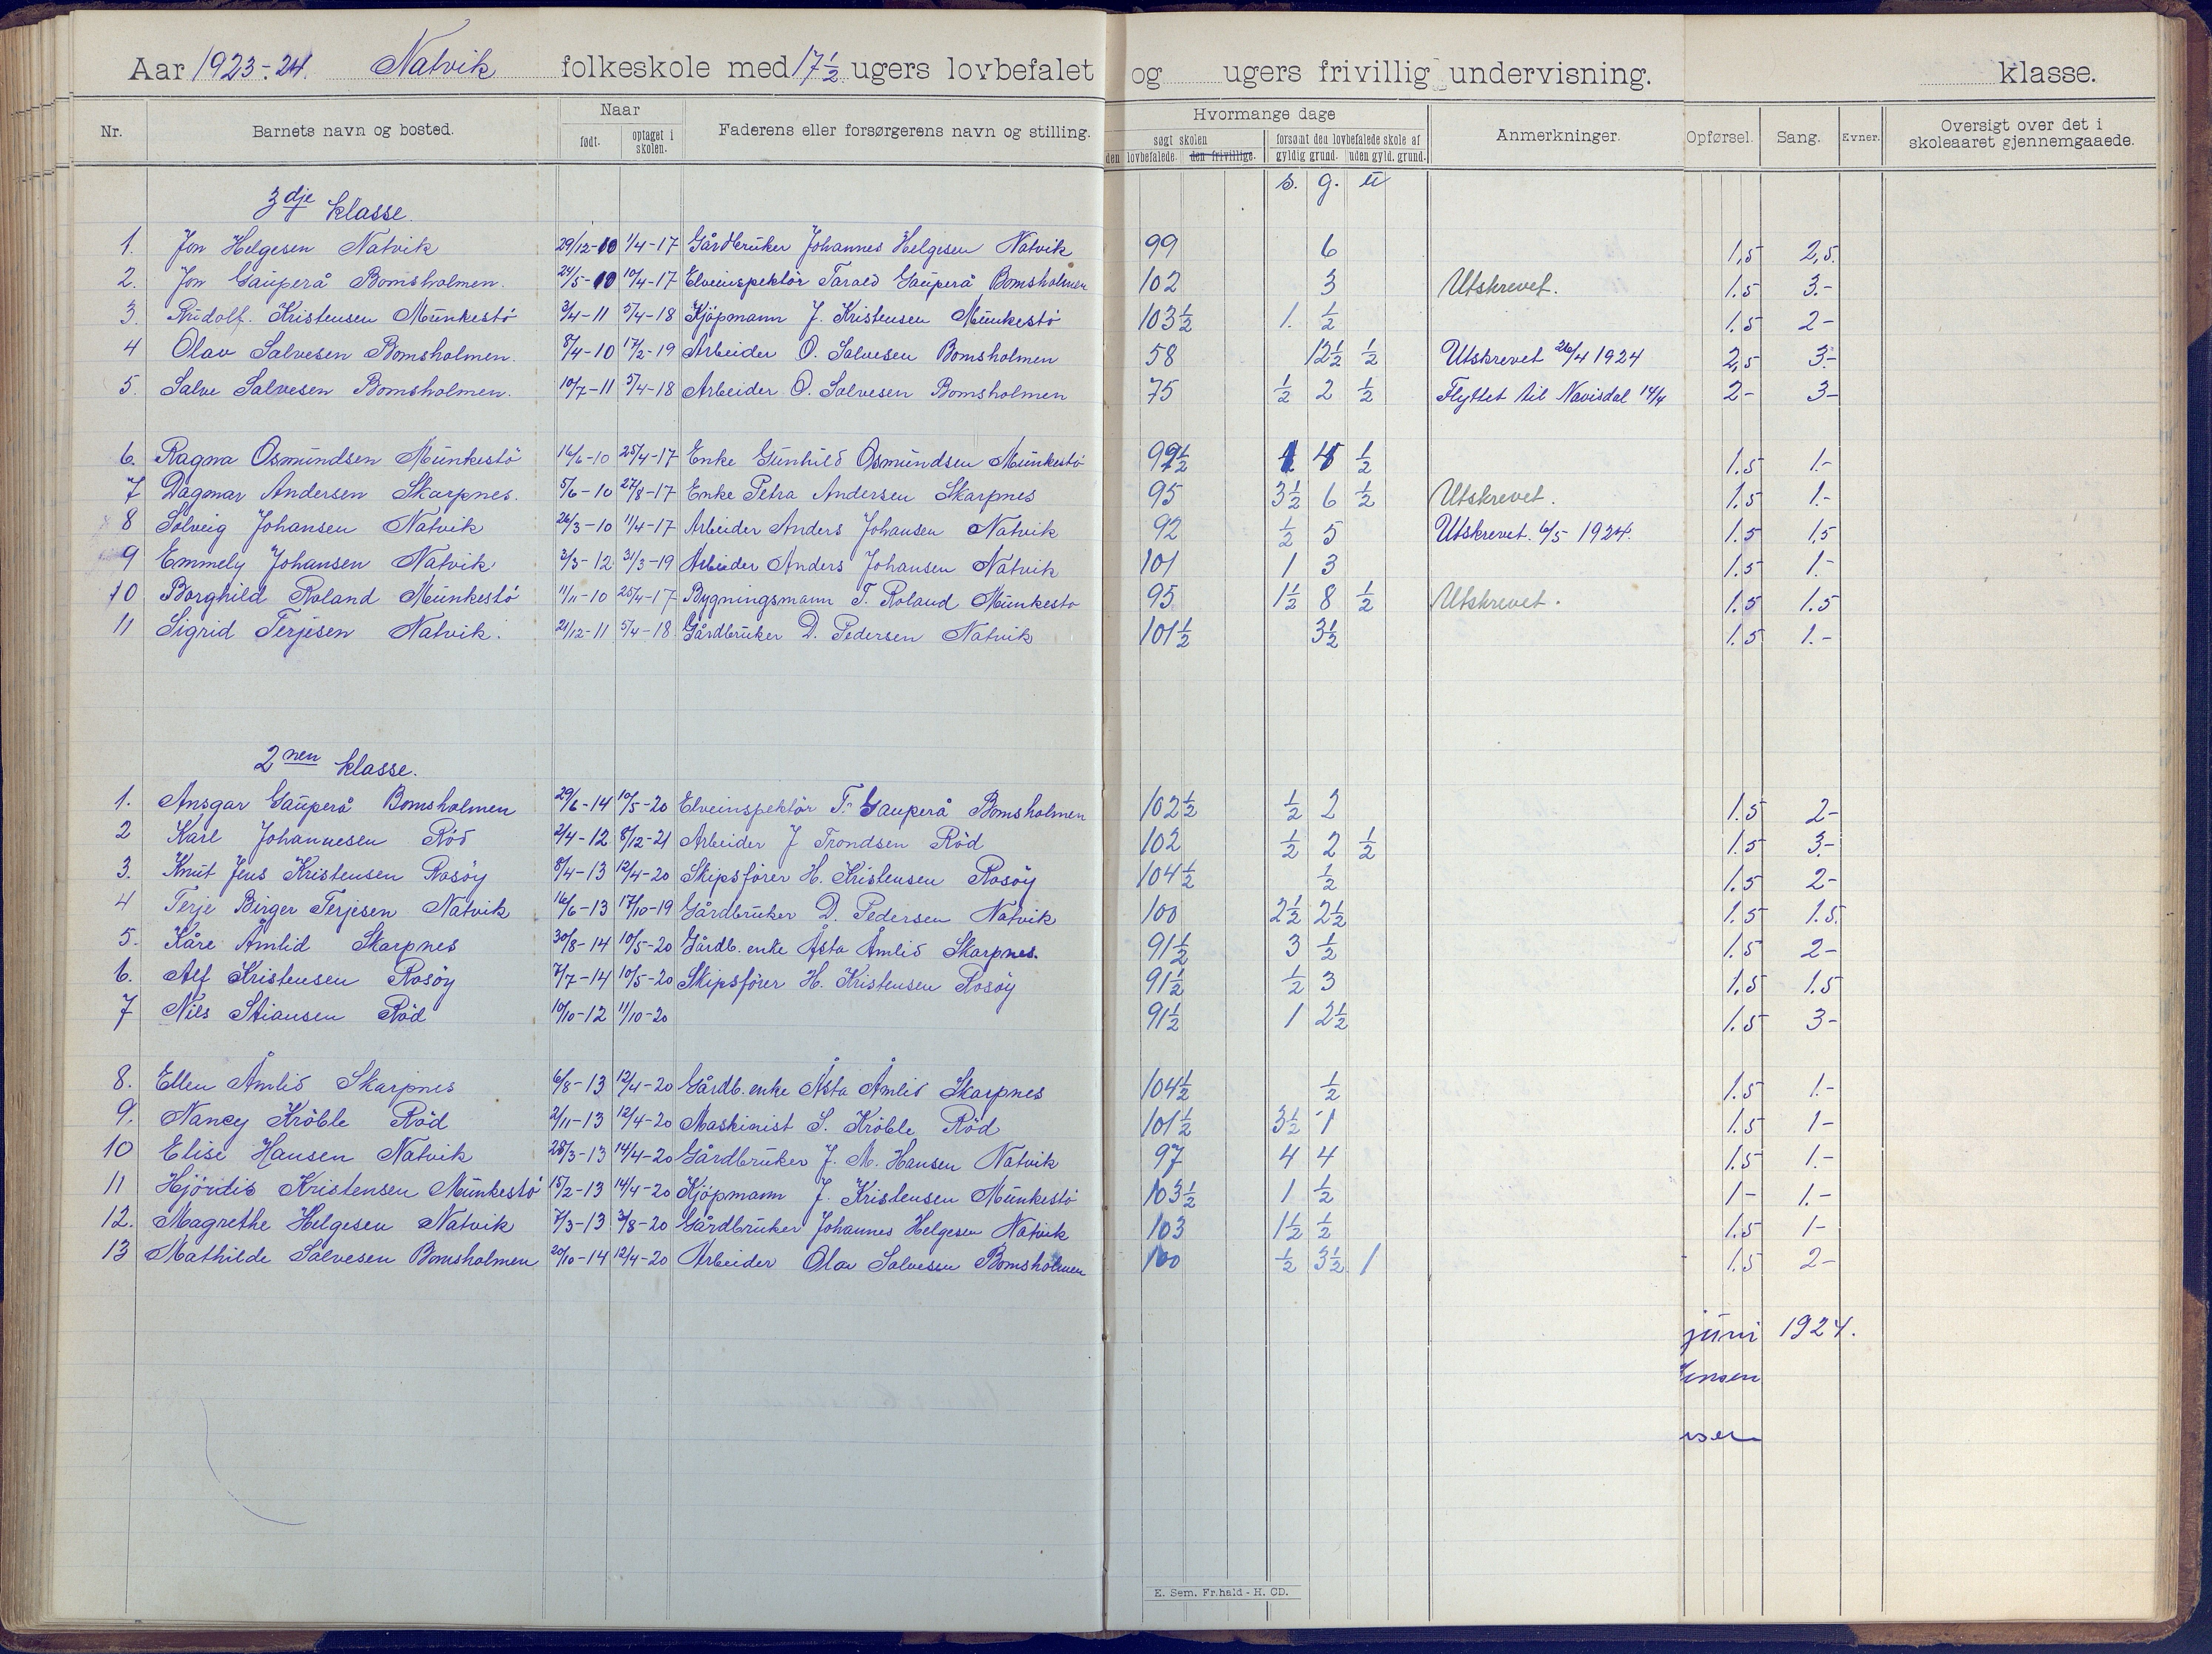 Aar 1923-24. Natvik folkeskole med 17½ ugers lovbefalet og ugers frivillig undervisning. klasse.
Nr. Barnets navn og bosted. Naar Faderens eller forsørgerens navn og stilling. Hvormange dage Anmerkninger. Opførsel. Sang. Evner. Oversigt over det i skoleaaret gjennemgaaede.
født. optaget i skolen. søgt skolen forsømt den lovbefalede skole af
den lovbefalede. den frivillige. gyldig grund. uden gyld. grund.
s. g. u
3dje klasse.
1. Jon Helgesen Natvik 29/12-10 1/4-17 Gårdbruker Johannes Helgesen Natvik 99 6 1,5 2,5.
2. Jon Gauperå Bomsholmen. 24/5-10 10/4-17 Elveinspektör Tarald Gauperå Bomsholmen 102 3 Utskrevet. 1.5 3.-
3. Rudolf. Kristensen Munkestö 3/4-11 5/4-18 Kjöpmann J. Kristensen Munkestö 103½ 1. ½ 1.5 2-
4 Olav Salvesen Bomsholmen. 8/4-10 17/2-19 Arbeider O. Salvesen Bomsholmen 58 12½ ½ Utskrevet 26/4 1924 2,5 3.-
5. Salve Salvesen Bomsholmen. 10/7-11 5/4-18 Arbeider O. Salvesen Bomsholmen 75 ½ 2 ½ Flyttet til Navisdal 14/4 2- 3-
6. Ragna Osmundsen Munkestö 16/6-10 25/4-17 Enke Gunhild Osmundsen Munkestö 99½ 1 4 ½ 1.5 1.-
7 Dagmar Andersen Skarpnes. 5/6-10 27/8-17 Enke Petra Andersen Skarpnes 95 3½ 6 ½ Utskrevet. 1.5 1.-
8 Solveig Johansen Natvik 26/3-10 11/4-17 Arbeider Anders Johansen Natvik 92 ½ 5 Utskrevet. 6/5 1924. 1.5 1,5
9 Emmely Johansen Natvik 3/3-12 31/3-19 Arbeider Anders Johansen Natvik 101 1 3 1.5 1.-
10 Borghild Roland Munkestö 11/11-10 25/4-17 Bygningsmann T. Roland Munkestö 95 1½ 8 ½ Utskrevet. 1.5 1.5
11 Sigrid Terjesen Natvik. 21/12-11 5/4-18 Gårdbruker D. Pedersen Natvik 101½ 3½ 1.5 1.-
2nen klasse.
1. Ansgar Gauperå Bomsholmen 29/6-14 10/5-20 Elveinspektör T. Gauperå Bomsholmen 102½ ½ 2 1.5 2-
2 Karl Johannesen Röd 2/4-12 8/12-21 Arbeider J Trondsen Röd 102 ½ 2 ½ 1.5 3.-
3. Knut Jens Kristensen Rosöy 8/4-13 12/4-20 Skipsförer H. Kristensen Rosöy 104½ ½ 1.5 2-
4 Terje Birger Terjesen Natvik 16/6-13 17/10-19 Gårdbruker D. Pedersen Natvik 100 2½ 2½ 1.5 1.5.
5. Kåre Åmlid Skarpnes 30/8-14 10/5-20 Gårdb. enke Åsta Åmlid Skarpnes. 91½ 3 ½ 1.5 2-
6. Alf Kristensen Rosöy 7/7-14 10/5-20 Skipsförer H. Kristensen Rosöy 91½ ½ 3 1.5 1.5
7 Nils Stiansen Röd 10/10-12 11/10-20 91½ 1 2½ 1.5 3-
8. Ellen Åmlid Skarpnes 6/8-13 12/4-20 Gårdb. enke Åsta Åmlid Skarpnes 104½ ½ 1.5 1.-
9. Nancy Kröble Röd 2/11-13 12/4-20 Maskinist S. Kröble Röd 101½ 3½ 1 1.5 1-
10 Elise Hansen Natvik 28/3-13 14/4-20 Gårdbruker J. M. Hansen Natvik 97 4 4 1.5 1.-
11 Hjördis Kristensen Munkestö 15/2-13 14/4-20 Kjöpmann J. Kristensen Munkestö 103½ 1 ½ 1- 1.-
12. Magrethe Helgesen Natvik 7/3-13 3/8-20 Gårdbruker Johannes Helgesen Natvik 103 1½ ½ 1.5 1-
13 Mathilde Salvesen Bomsholmen 20/10-14 12/4-20 Arbeider Olav Salvesen Bomsholmen 100 ½ 3½ 1 1.5 2-
juni 1924.
ensen
sen
E. Sem. Fr.hald - H. CD.